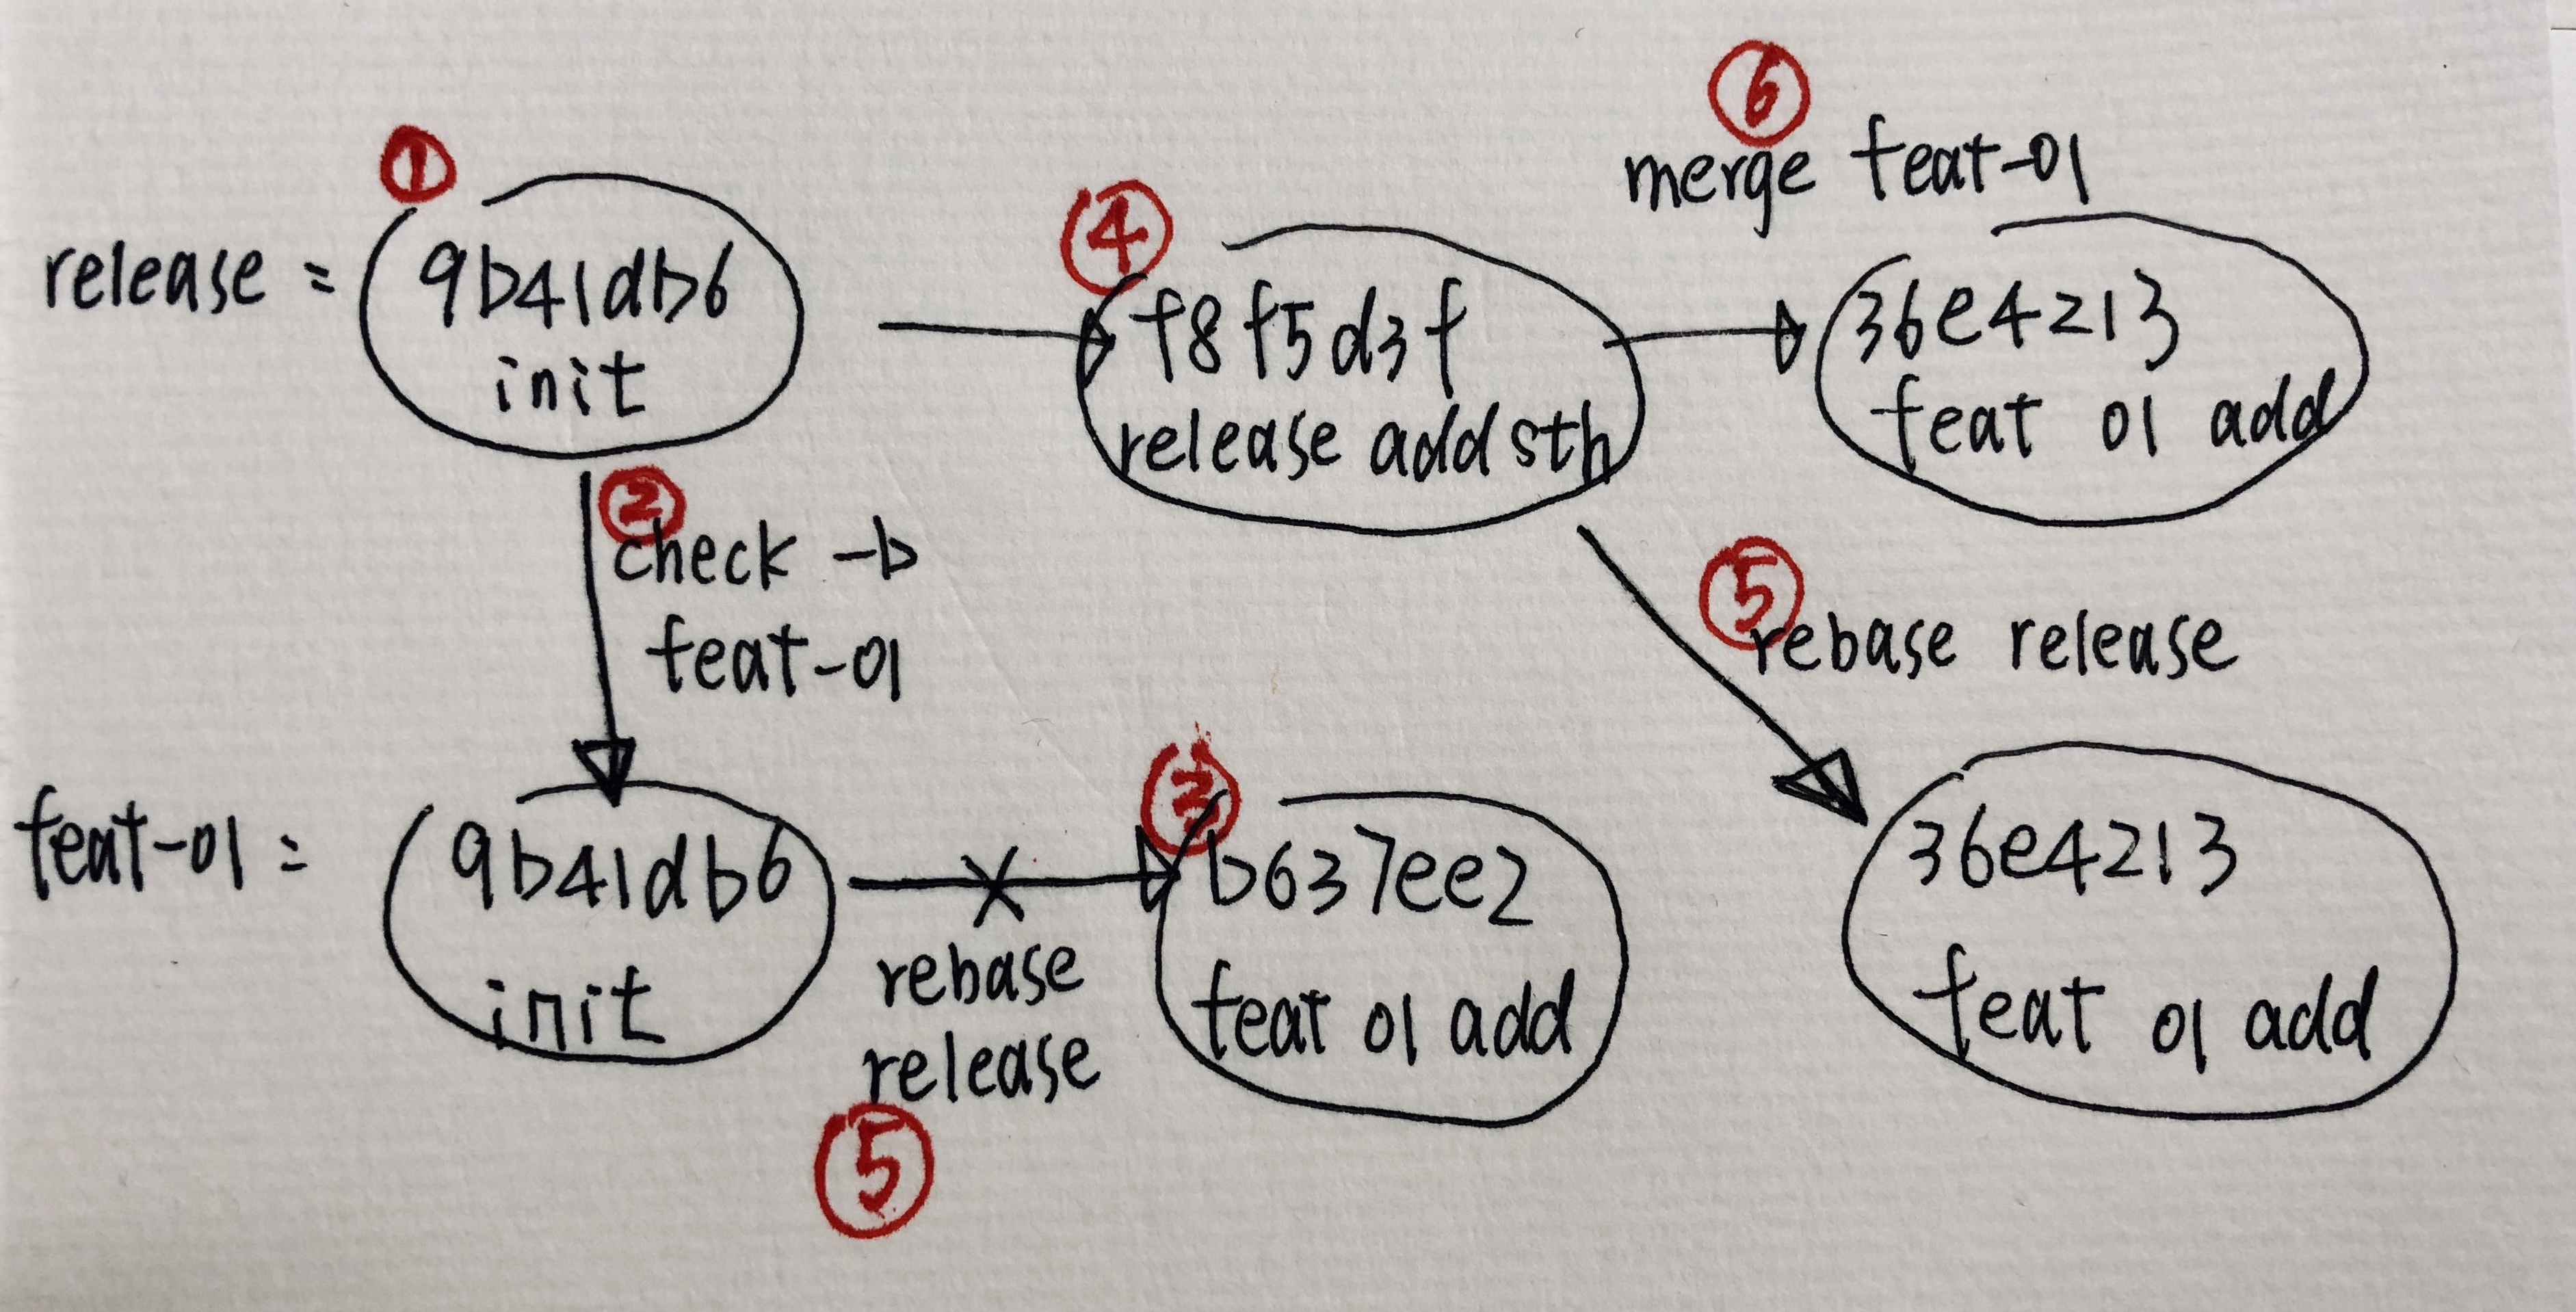 ①
release =
9b41db6
init
④
f8f5d3f
release add sth
⑥
merge feat-01
36e4213
feat 01 add
②
check -b
feat-01
⑤
rebase release
feat-01 =
9b41db6
init
rebase
release
⑤
③
b637ee2
feat 01 add
36e4213
feat 01 add